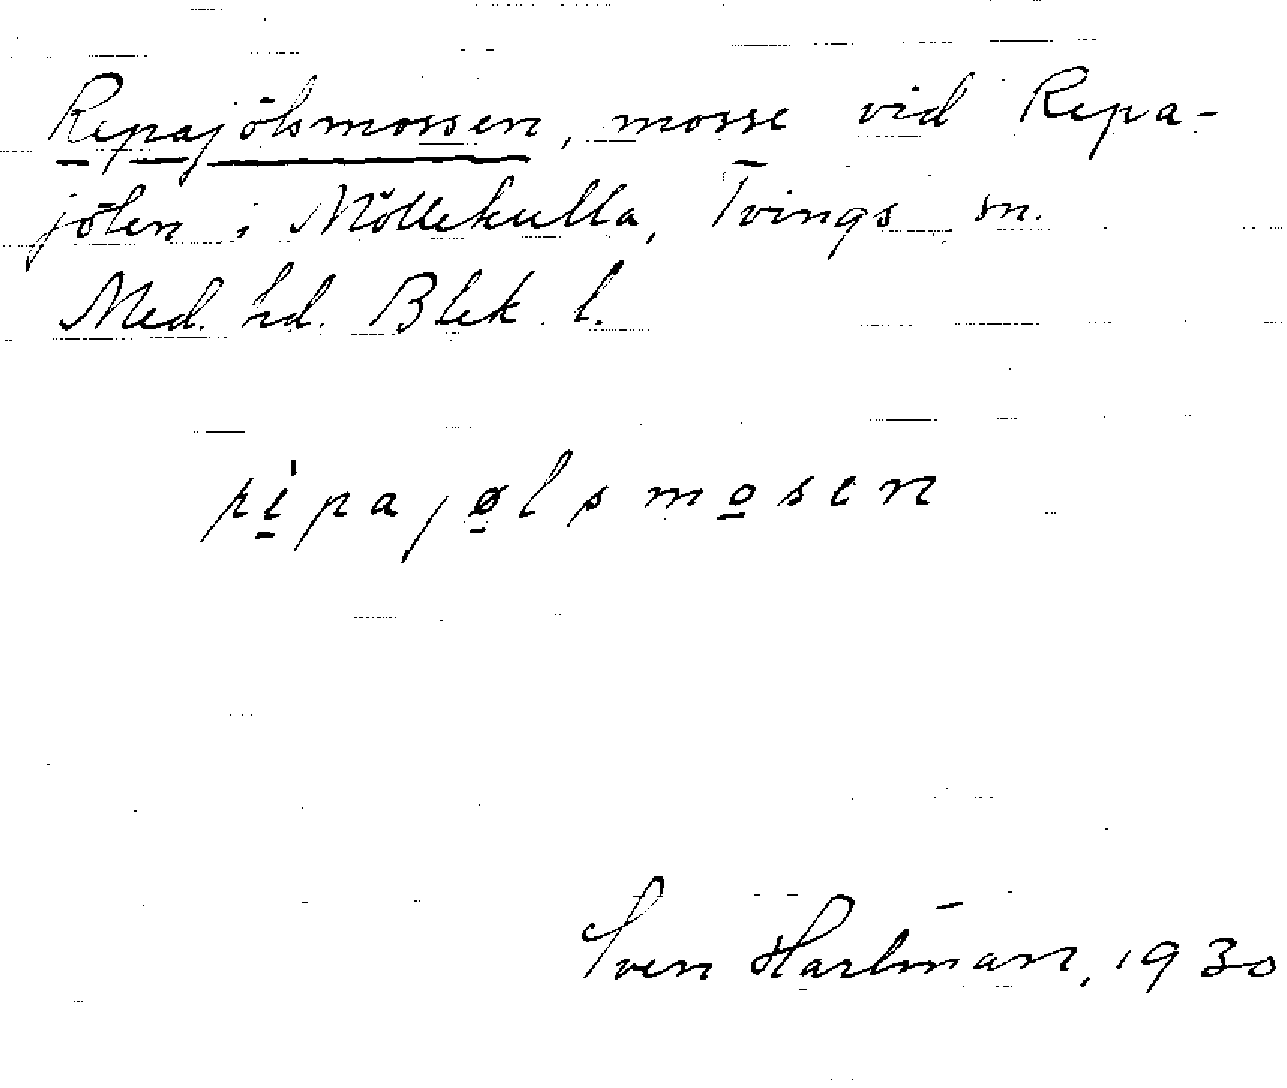 Repajölsmossen, mosse vid Repa-
jölen i Möllekulla, Tvings sn.
Med. hd. Blek. l.
Sven Hartman, 1930